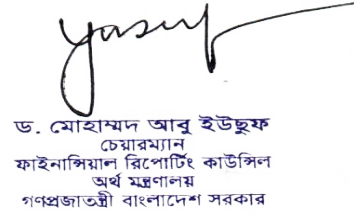 yasuf
ড. মোহাম্মদ আবু ইউছুফ
চেয়ারম্যান
ফাইনান্সিয়াল রিপোর্টিং কাউন্সিল
অর্থ মন্ত্রণালয়
গণপ্রজাতন্ত্রী বাংলাদেশ সরকার